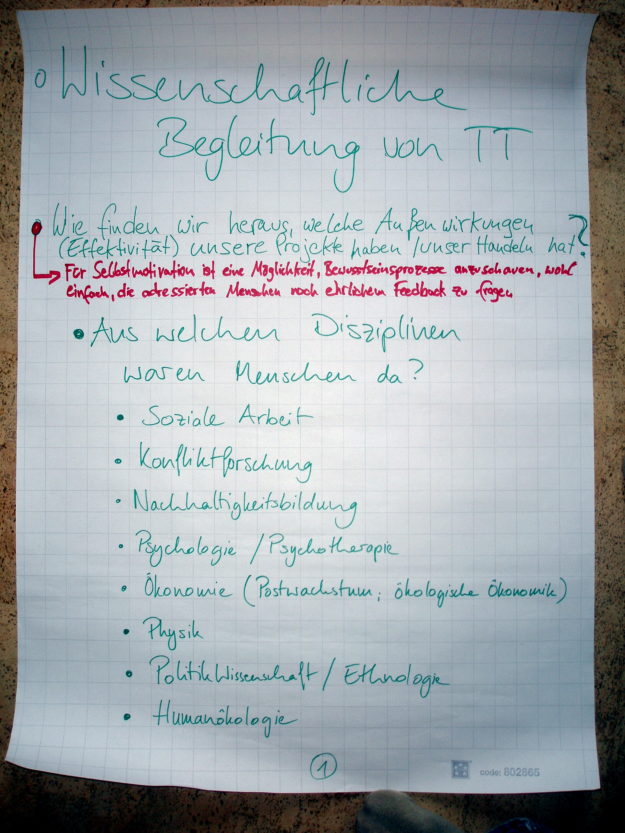 Wissenschaftliche
Begleitung von TT
Wie finden wir heraus, welche Außenwirkungen
(Effektivität) unsere Projekte haben /unser Handeln hat?
Für Selbstmotivation ist eine Möglichkeit, Bewusstseinsprozesse anzuschauen, wohl
einfach, die adressierten Menschen nach ehrlichem Feedback zu fragen
Aus welchen Disziplinen
waren Menschen da?
• Soziale Arbeit
• Konfliktforschung
• Nachhaltigkeitsbildung
• Psychologie / Psychotherapie
• Ökonomie (Postwachstum; ökologische Ökonomik)
• Physik
• Politikwissenschaft / Ethnologie
• Humanökologie
1
code: 802865